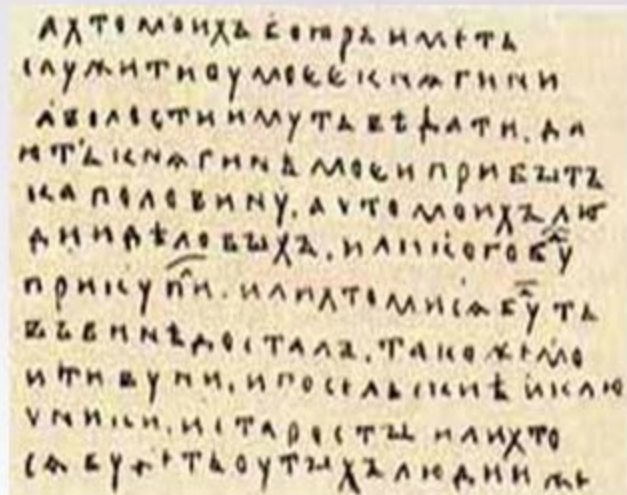 а хто моихъ бояръ имѣть
служити оу моеє кнѧгини
а волости имуть вѣдати. да
ють кнѧгинѣ моєи прибытъ
ка половину. а что моихъ лю
дии дѣловыхъ. или кого бу
прикупи. или хто ми сѧ буть
въ винѣ досталъ. такоже мо
и тивуни. и посельскиѣ и клю
чники. и старосты или хто
сѧ будеть оу тыхъ людии же